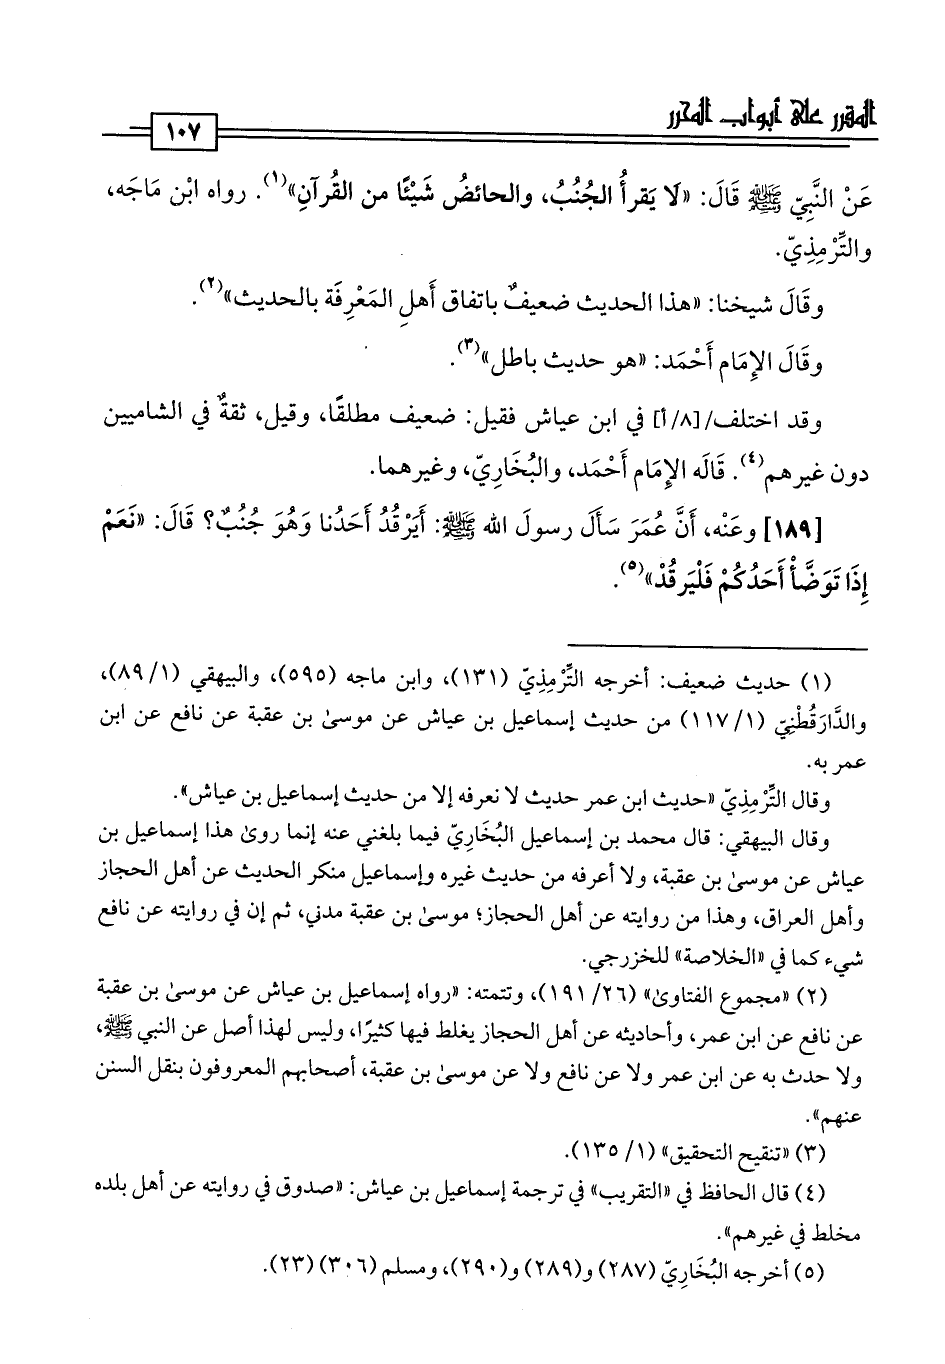 المقرر على أبواب المحرر
١٠٧
عَنْ النَّبِيّ ﷺ قَالَ: «لَا يَقرأُ الجُنُبُ، والحائضُ شَيْئًا من القُرآنِ»(١). رواه ابْن مَاجَه،
والتِّرْمِذِيّ.
وقَالَ شيخنا: «هذا الحديث ضعيفٌ باتفاق أَهلِ المَعْرِفَة بالحديث»(٢).
وقَالَ الإِمَام أَحْمَد: «هو حديث باطل»(٣).
وقد اختلف/[٨/أ] في ابن عياش فقيل: ضعيف مطلقًا، وقيل، ثقةٌ في الشاميين
دون غيرهم(٤). قَالَه الإِمَام أَحْمَد، والبُخَاريّ، وغيرهما.
[١٨٩] وعَنْه، أَنَّ عُمَرَ سَأَلَ رسولَ الله ﷺ: أَيَرْقُدُ أَحَدُنا وَهُوَ جُنُبٌ؟ قَالَ: «نَعَمْ
إِذَا تَوَضَّأْ أَحَدُكُمْ فَلْيَرقُدْ»(٥).
(١) حديث ضعيف: أخرجه التِّرْمِذِيّ (١٣١)، وابن ماجه (٥٩٥)، والبيهقي (١/ ٨٩)،
والدَّارَقُطْنِيّ (١/ ١١٧) من حديث إسماعيل بن عياش عن موسىٰ بن عقبة عن نافع عن ابن
عمر به.
وقال التِّرْمِذِيّ «حديث ابن عمر حديث لا نعرفه إلا من حديث إسماعيل بن عياش».
وقال البيهقي: قال محمد بن إسماعيل البُخَاريّ فيما بلغني عنه إنما روىٰ هذا إسماعيل بن
عياش عن موسىٰ بن عقبة، ولا أعرفه من حديث غيره وإسماعيل منكر الحديث عن أهل الحجاز
وأهل العراق، وهذا من روايته عن أهل الحجاز؛ موسىٰ بن عقبة مدني، ثم إن في روايته عن نافع
شيء كما في «الخلاصة» للخزرجي.
(٢) «مجموع الفتاوىٰ» (٢٦/ ١٩١)، وتتمته: «رواه إسماعيل بن عياش عن موسىٰ بن عقبة
عن نافع عن ابن عمر، وأحاديثه عن أهل الحجاز يغلط فيها كثيرًا، وليس لهذا أصل عن النبي ﷺ،
ولا حدث به عن ابن عمر ولا عن نافع ولا عن موسىٰ بن عقبة، أصحابهم المعروفون بنقل السنن
عنهم».
(٣) «تنقيح التحقيق» (١/ ١٣٥).
(٤) قال الحافظ في «التقريب» في ترجمة إسماعيل بن عياش: «صدوق في روايته عن أهل بلده
مخلط في غيرهم».
(٥) أخرجه البُخَاريّ (٢٨٧) و(٢٨٩) و(٢٩٠)، ومسلم (٣٠٦) (٢٣).